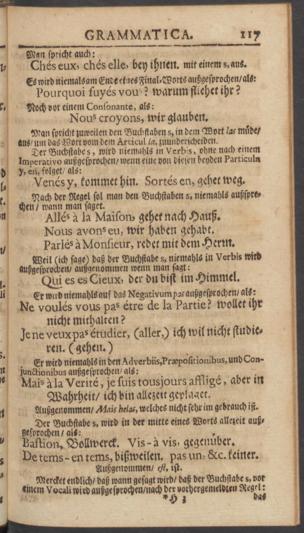 GRAMMATICA. 117
Man spricht auch:
Chés eux, chés elle, bey ihnen, mit einem s, aus.
Es wird niemals am Ende eines Final-Worts außgesprochen/als:
Pourquoi fuyés vouˢ? warum fliehet ihr?
Noch vor einem Consonante, als:
Nouˢ croyons, wir glauben.
Man spricht zuweilen den Buchstaben s, in dem Wort las müde/
aus/ um das Wort vom dem Articul la, zu underscheiden.
Der Buchstabe s, wird niemahls in Verbis, ohne nach einem
Imperativo außgesprochen/ wenn eine von diesen beyden Particuln
y, en, folget/ als:
Venés y, kommet hin. Sortés en, gehet weg.
Nach der Regel sol man den Buchstaben s, niemahls außspre-
chen/ wann man saget.
Alléˢ à la Maison, gehet nach Hauß.
Nous avonˢ eu, wir haben gehabt.
Parléˢ à Monsieur, redet mit dem Herrn.
Weil (ich sage) daß der Buchstabe s, niemahls in Verbis wird
außgesprochen/ außgenommen wenn man sagt:
Qui es es Cieux, der du bist im Himmel.
Er wird niemahls auf das Negativum pas außgesprochen/ als:
Ne voulés vous paˢ être de la Partie? wollet ihr
nicht mithalten?
Je ne veux paˢ étudier, (aller,) ich wil nicht studie-
ren. (gehen.)
Er wird niemahls in den Adverbiis, Præpositionibus, und Con-
junctionibus außgesprochen/ als:
Maiˢ à la Verité, je suis tousjours affligé, aber in
Wahrheit/ ich bin allezeit geplaget.
Außgenommen/ Mais helas, welches nicht sehr im gebrauch ist.
Der Buchstabe s, wird in der mitte eines Worts allezeit auß-
gesprochen/ als:
Bastion, Bollwerck. Vis-à vis, gegenüber.
De tems-en tems, bißweilen. pas un, &c. keiner.
Außgenommen/ est, ist.
Mercket endlich/ daß wann gesagt wird/ daß der Buchstabe s, vor
einem Vocali wird außgesprochen/ nach der vorhergemeldten Regel:
*H 3 das